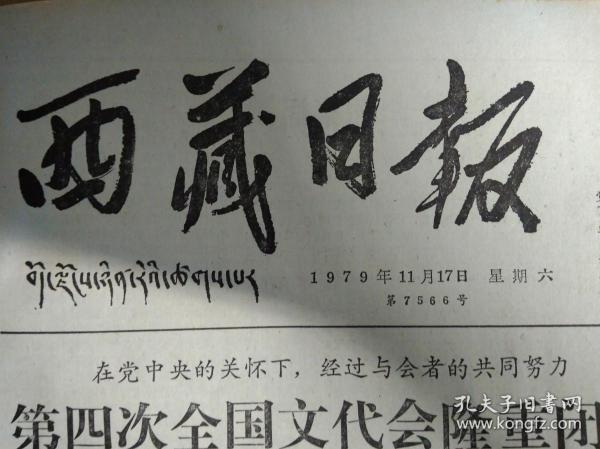 西藏日报
1979年11月17日 星期六
第7566号
在党中央的关怀下，经过与会者的共同努力
第四次全国文代会隆重闭
孔夫子旧书网